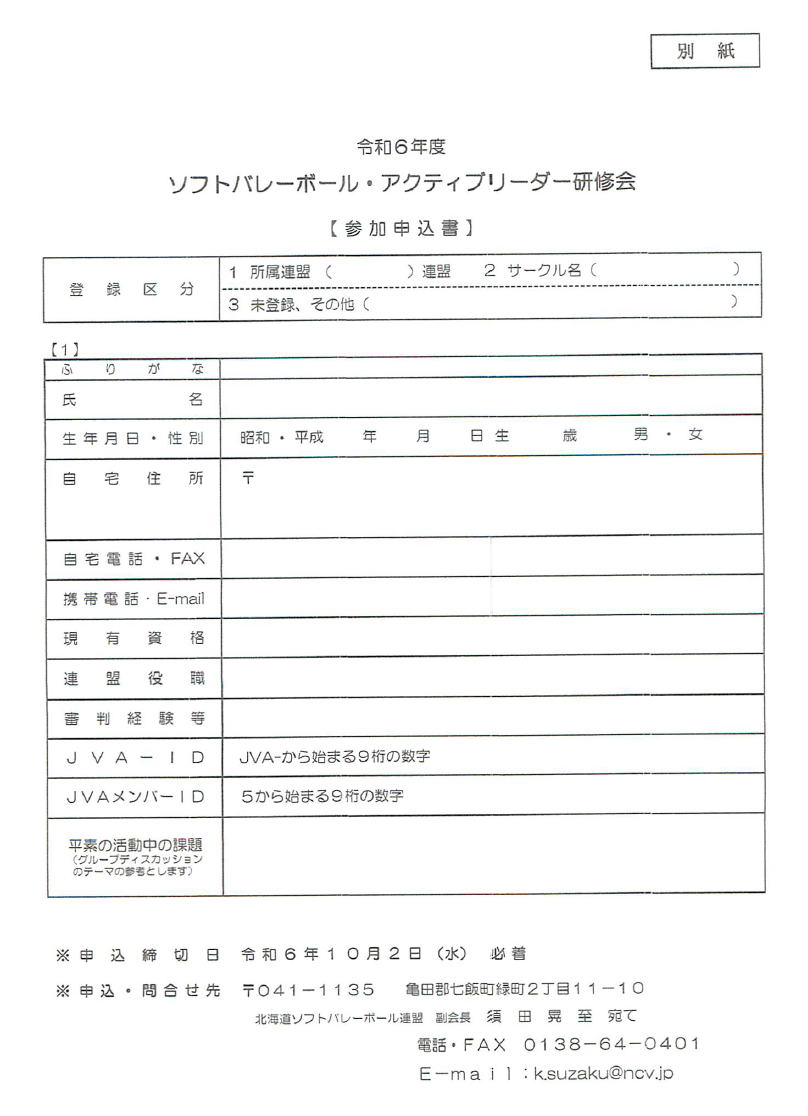 別　紙
令和６年度
ソフトバレーボール・アクティブリーダー研修会
【 参 加 申 込 書 】
登　録　区　分
１ 所属連盟 （　　　　　）連盟　　２ サークル名（　　　　　　　　　）
３ 未登録、その他（　　　　　　　　　　　　　　　　　　　　　　　）
【１】
ふ　り　が　な
氏　　　　　名
生年月日・性別　昭和 ・ 平成　　年　　月　　日 生　　　歳　　　男 ・ 女
自　宅　住　所　〒
自宅電話・FAX
携帯電話・E-mail
現　有　資　格
連　盟　役　職
審 判 経 験 等
ＪＶＡ－ＩＤ　JVA-から始まる９桁の数字
ＪＶＡメンバーＩＤ　５から始まる９桁の数字
平素の活動中の課題
（グループディスカッション
のテーマの参考とします）
※ 申　込　締　切　日　令和６年１０月２日（水）　必着
※ 申込・問合せ先　〒０４１－１１３５　　亀田郡七飯町緑町２丁目１１－１０
北海道ソフトバレーボール連盟　副会長　須　田　晃　至　宛て
電話・ＦＡＸ　０１３８－６４－０４０１
Ｅ－ｍａｉｌ：k.suzaku@ncv.jp